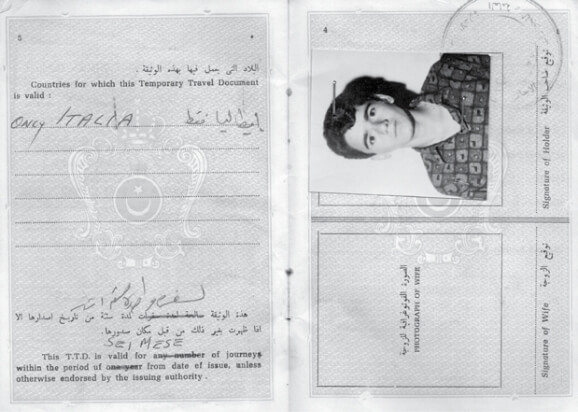 5
البلاد التى يعمل فيها بهذه الوثيقة
Countries for which this Temporary Travel Document
is valid :
ONLY ITALIA إيطاليا فقط
هذه الوثيقة صالحة لعدد سفريات لمدة سنة من تاريخ اصدارها الا
اذا ظهرت بغير ذلك من قبل مكان صدورها.
SEI MESE
This T.T.D. is valid for any number of journeys
within the period of one year from date of issue, unless
otherwise endorsed by the issuing authority.
4
توقيع صاحب الوثيقة
Signature of Holder
الصورة الفوتوغرافية للزوجة
PHOTOGRAPH OF WIFE
توقيع الزوجة
Signature of Wife